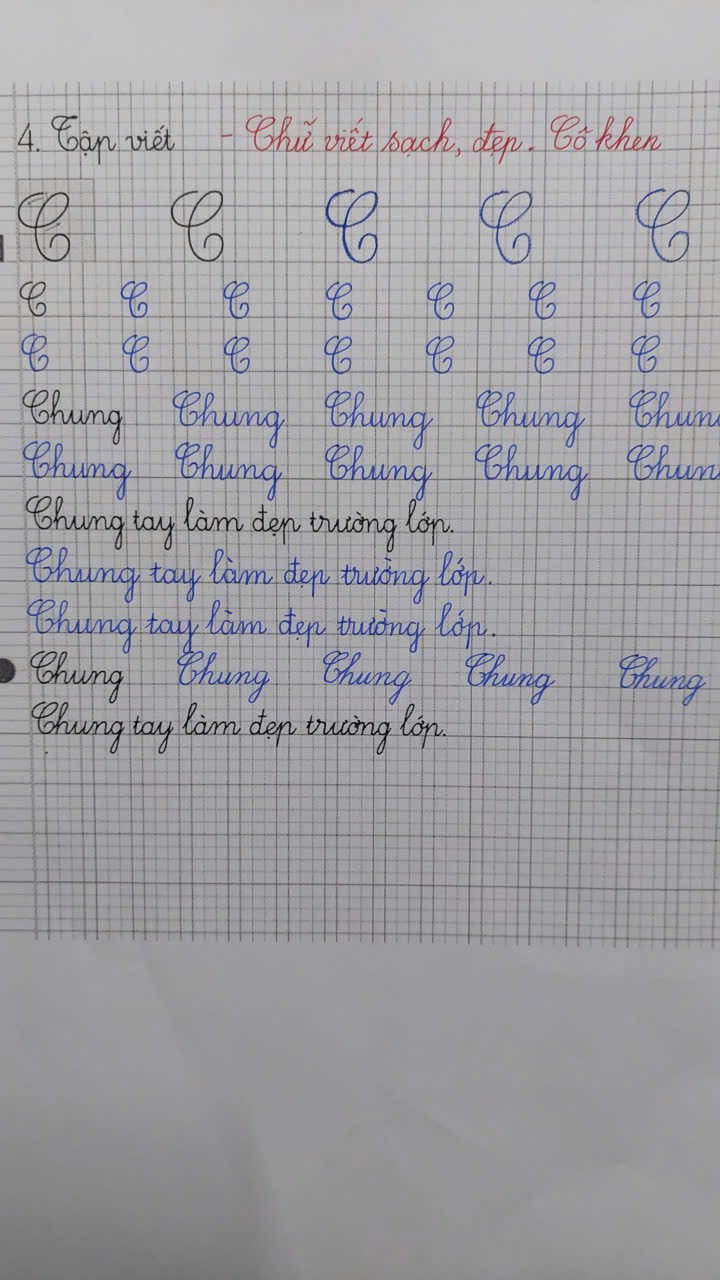 4. Tập viết - Chữ viết sạch, đẹp. Cô khen
C C C C C
C C C C C C C
C C C C C C C
Chung Chung Chung Chung Chun
Chung Chung Chung Chung Chun
Chung tay làm đẹp trường lớp.
Chung tay làm đẹp trường lớp.
Chung tay làm đẹp trường lớp.
Chung Chung Chung Chung Chung
Chung tay làm đẹp trường lớp.